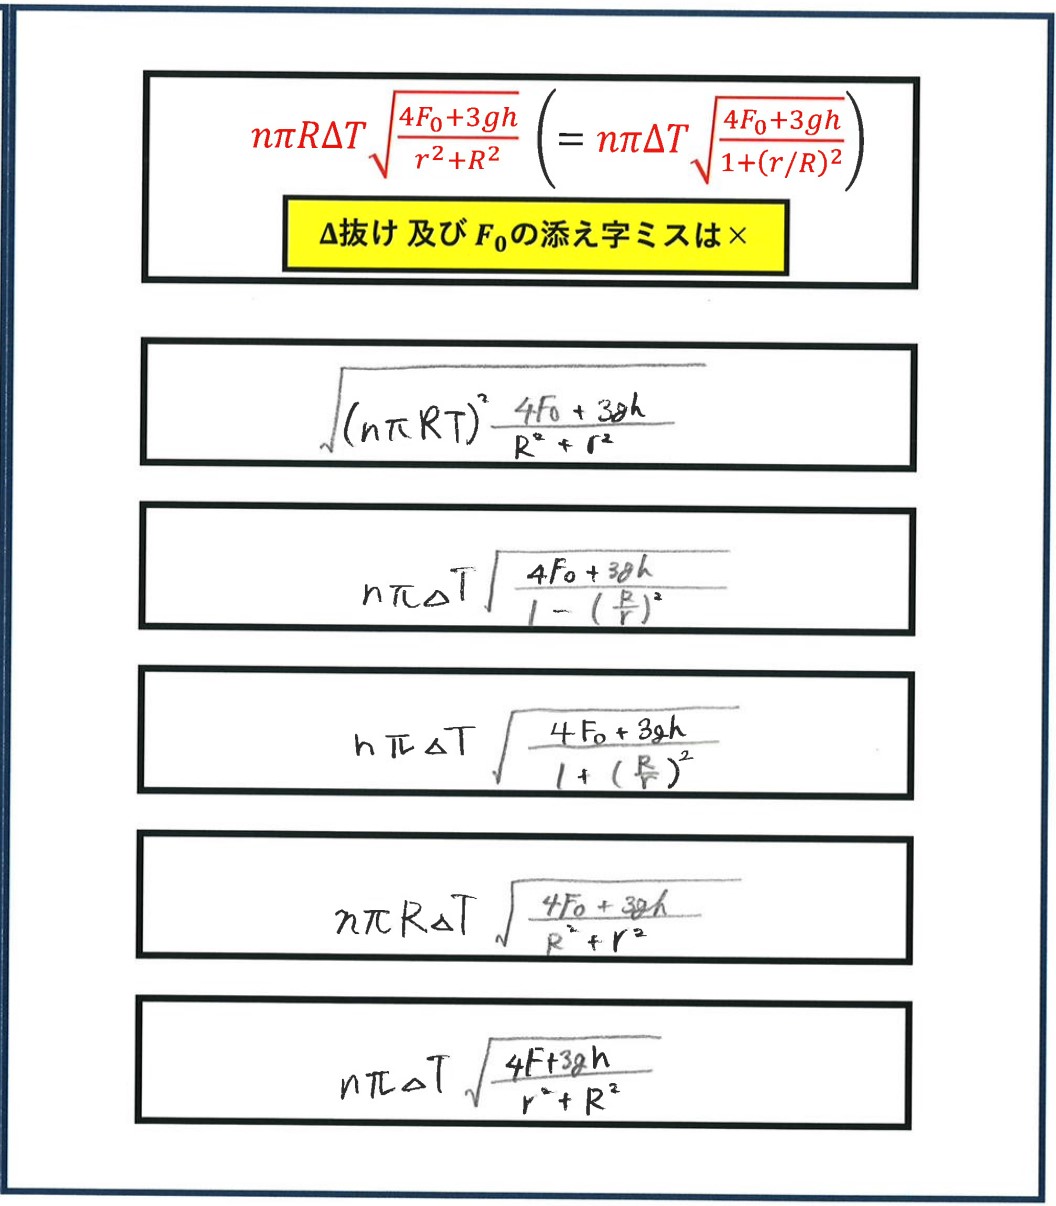 nπRΔT√((4F₀+3gh)/(r²+R²)) (= nπΔT√((4F₀+3gh)/(1+(r/R)²)))
Δ抜け 及び F₀の添え字ミスは×
√((nπRT)² (4F₀+3gh)/(R²+r²))
nπΔT√((4F₀+3gh)/(1-(R/r)²))
nπΔT√((4F₀+3gh)/(1+(R/r)²))
nπRΔT√((4F₀+3gh)/(R²+r²))
nπΔT√((4F+3gh)/(r²+R²))